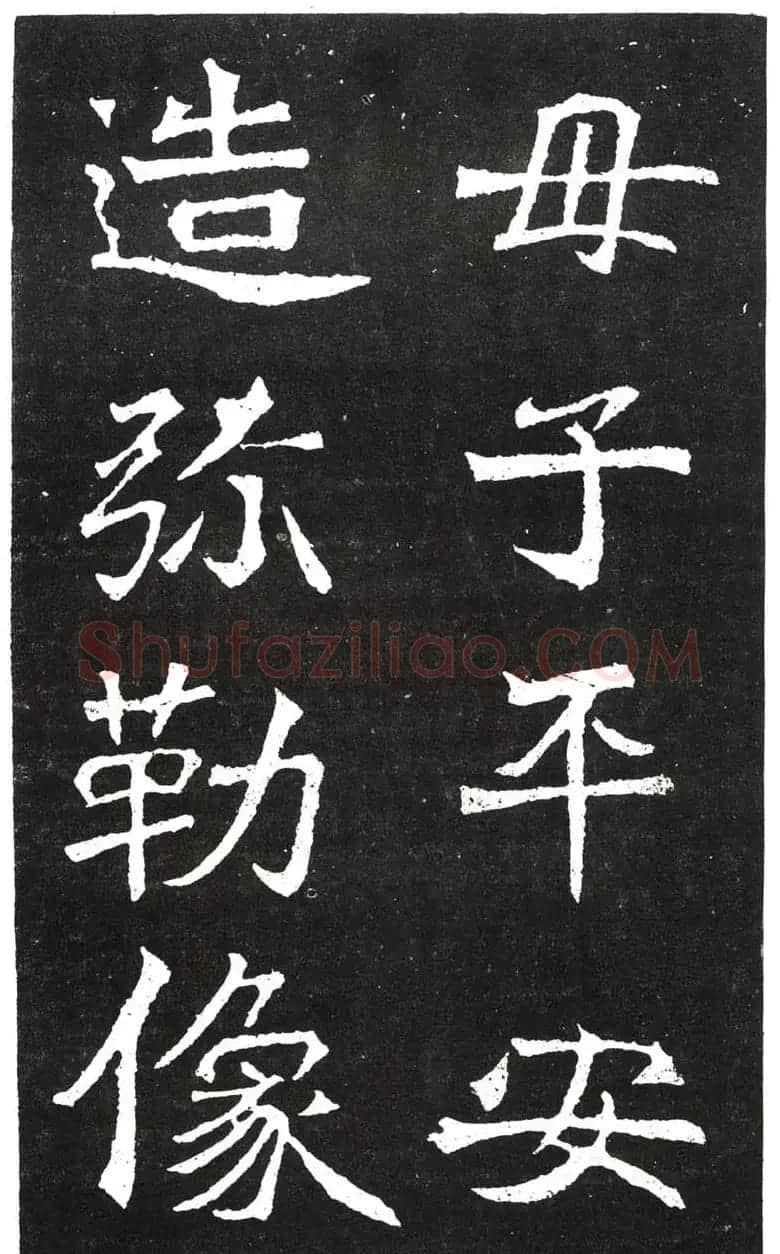 母子平安
造弥勒像
Shufaziliao.COM